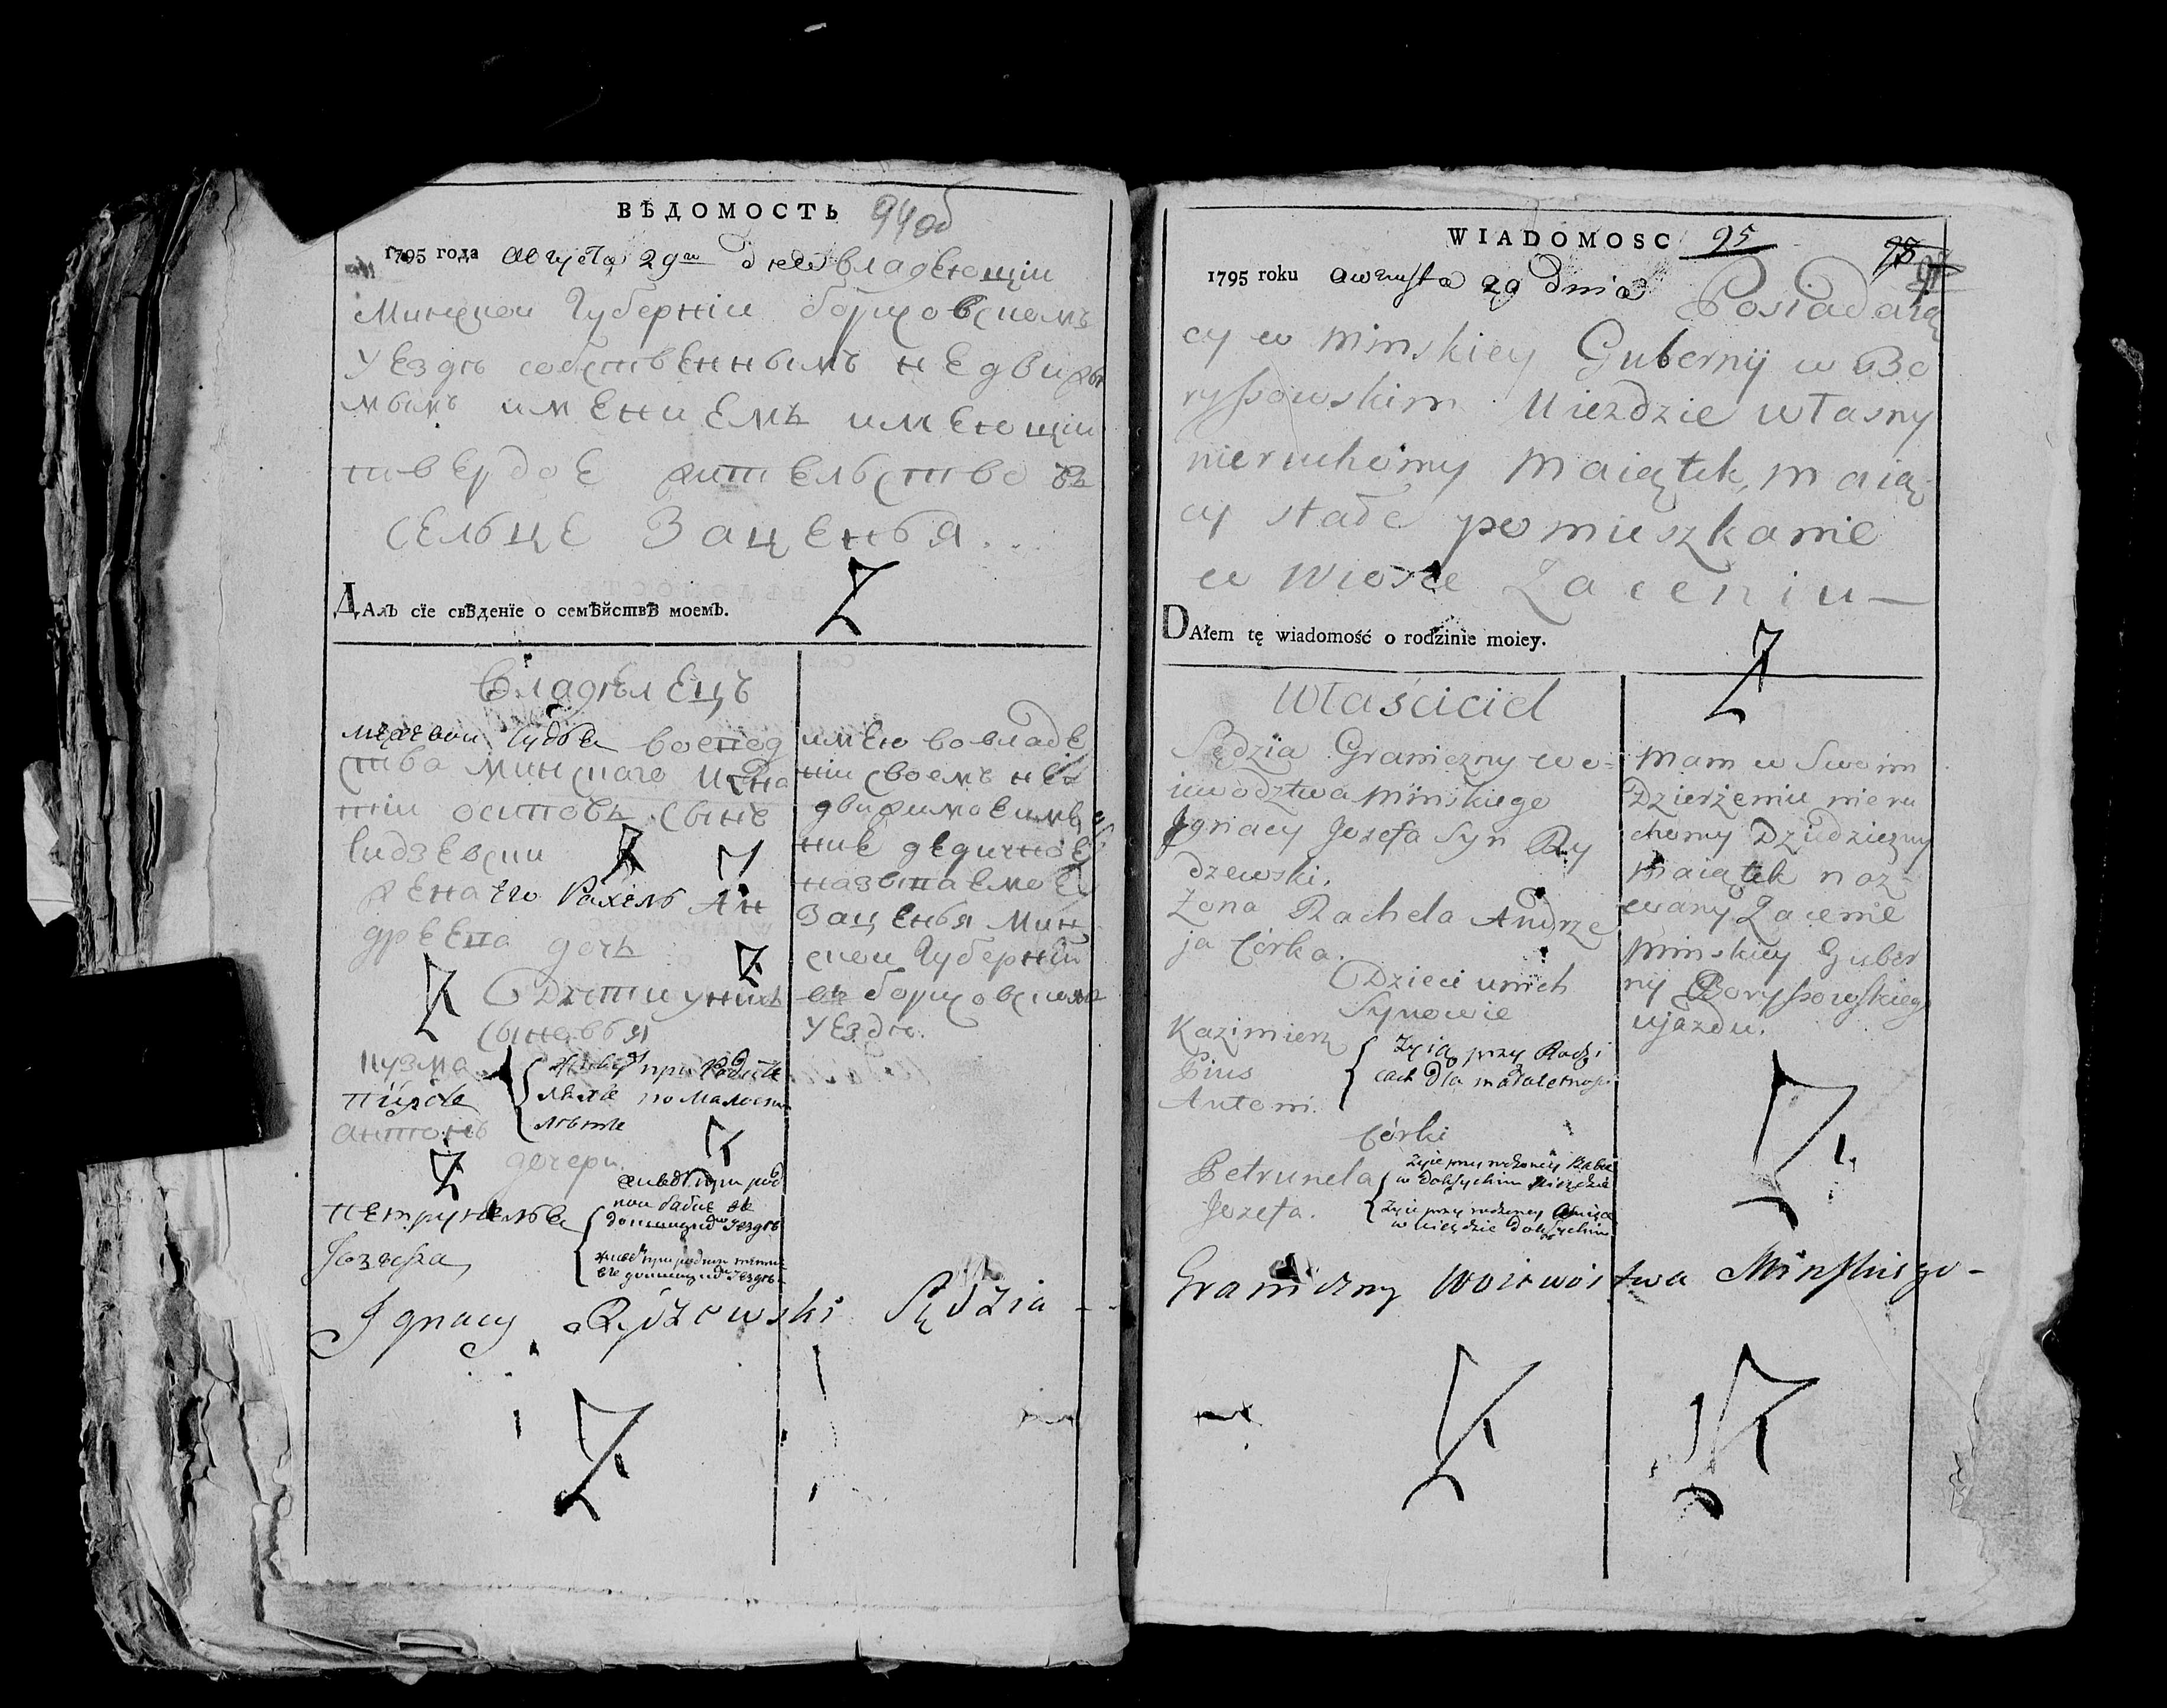 ВѢДОМОСТЬ 94об
1795 года августа 29го дня владеющiи
Минскои Губернiи борисовскомъ
уездѣ собственнымъ недвижи
мымъ имениемъ имеющiи
твердое жительство въ
сельце Заценья...
ДАлъ сїе свѣденїе о семѣйствѣ моемъ.
Владѣлецъ
межевои судья воевод
ства минскаго Игна
тiи осиповъ сынъ
Ридзевски
жена его Рахель Ан
дреева дочь
Дѣти у нихъ
сыновья
Кузма
Пiюсъ
антонъ
живут при родите
ляхъ по малоет
лѣтте
дочери
Петрунелья
живет при род
нои бабке въ
докшицкомъ уездѣ
Iозефа
имею во владе
нiи своемъ не
движимое име
ние дедичное
называемое
Заценья Мин
скои Губернiи
въ борисовскомъ
уездѣ.
Ignacy Rydzewski Sędzia -
WIADOMOSC 95
1795 roku awgusta 29 dnia Posiadaią
cy w minskiey Gubernij w Bo
ryssowskim Uiezdzie własny
nieruchomy maiątek, maią
cy stałe pomieszkanie
w wiosce Zaceniu —
DAłem tę wiadomość o rodzinie moiey.
Właściciel
Sędzia Graniczny wo-
iewodztwa mińskiego
Ignacy Jozefa Syn Ry
dzewski.
Żona Rachela Andrze
ja Córka.
Dzieci u nich
Synowie
Kazimierz
Pius
Antoni.
Żyią przy Rodzi
cach dla małoletnosci
Córki
Petrunela
Żyie przy rodzoney Babce
w dokszyckim Uiezdzie
Jozefa.
Żyie przy rodzoney
w Uiezdzie Dokszyckim
mam w Swoim
Dzierżeniu nieru
chomy Dziedziczny
maiątek naz
wany Zacenie
minskiey Guber
nij Boryssowskiego
ujazdu.
Graniczny Woiewostwa Minskiego -